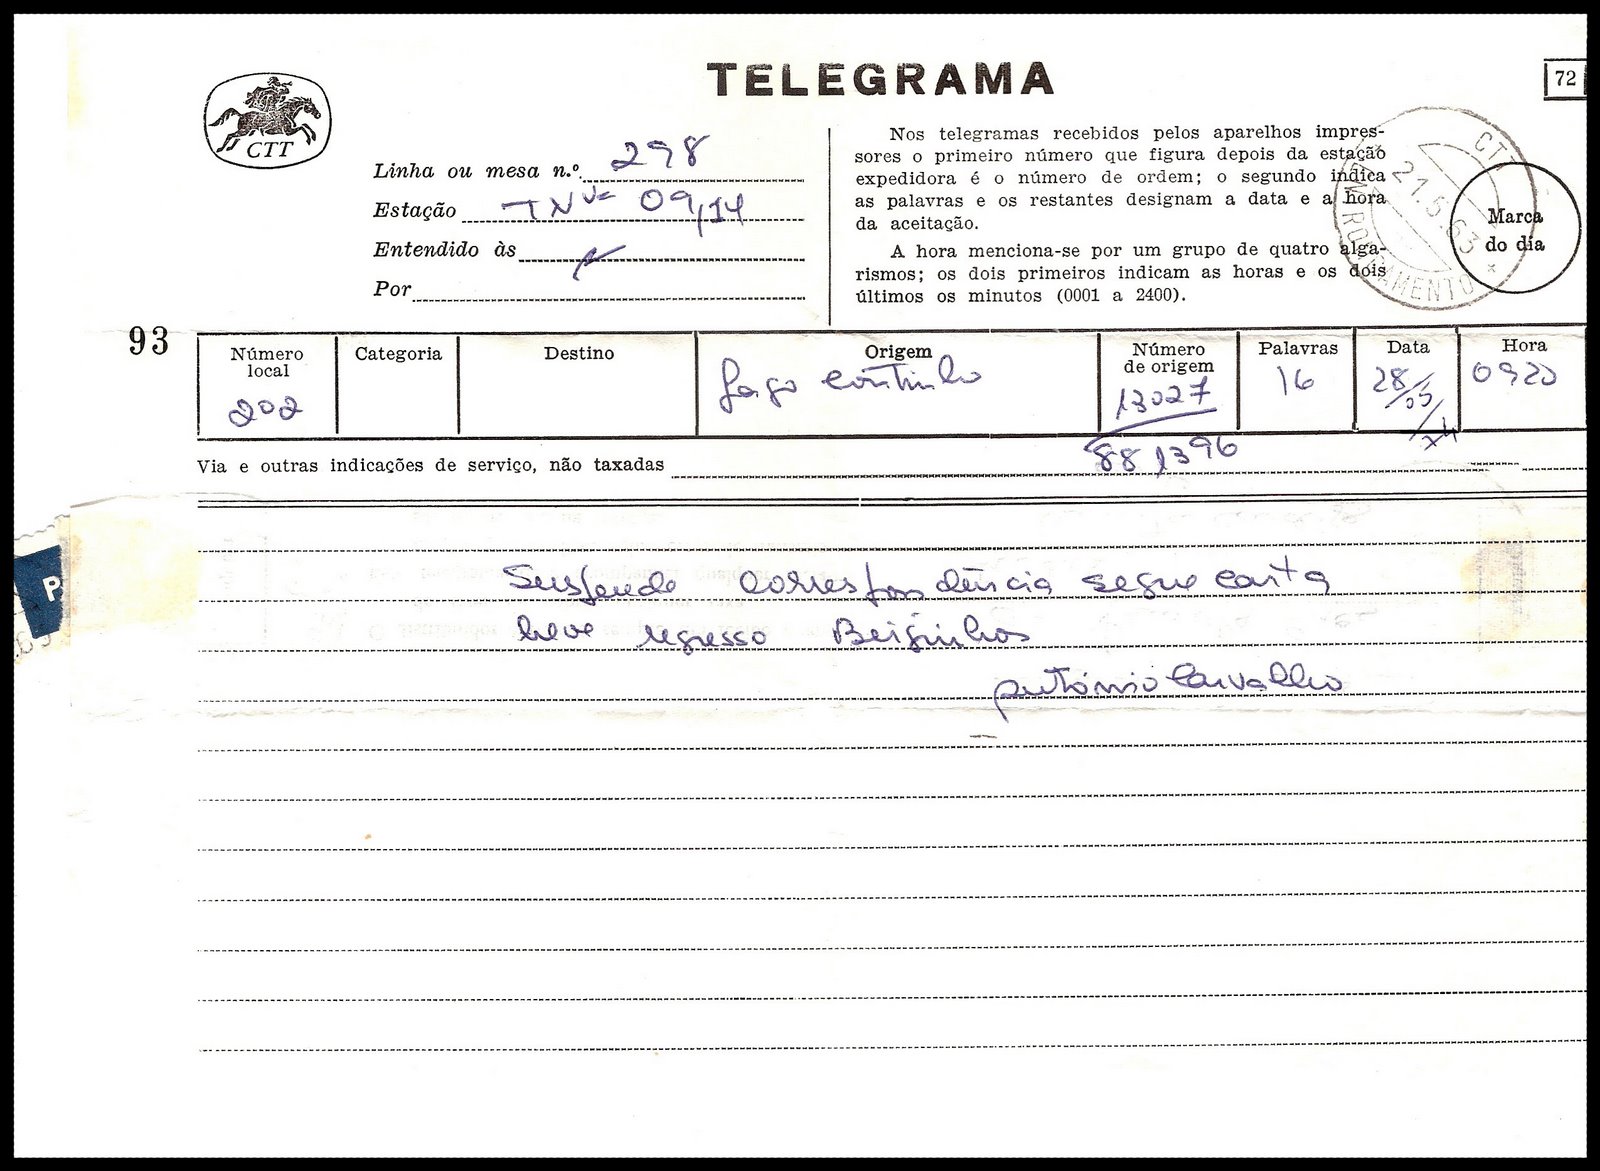 TELEGRAMA
72
CTT
Linha ou mesa n.º 298
Estação TNV= 09,14
Entendido às
Por
Nos telegramas recebidos pelos aparelhos impres-
sores o primeiro número que figura depois da estação
expedidora é o número de ordem; o segundo indica
as palavras e os restantes designam a data e a hora
da aceitação.
A hora menciona-se por um grupo de quatro alga-
rismos; os dois primeiros indicam as horas e os dois
últimos os minutos (0001 a 2400).
CTT
21.5.63
Marca
do dia
93
Número
local
202
Categoria
Destino
Origem
gago coutinho
Número
de origem
13027
Palavras
16
Data
28/05/74
Hora
0920
Via e outras indicações de serviço, não taxadas
881396
Suspende correspondência segue carta
breve regresso Beijinhos
António Carvalho
P